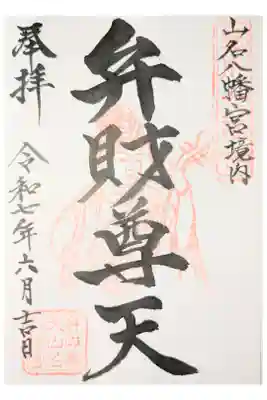 山名八幡宮境内
奉拝
弁財尊天
令和七年六月吉日